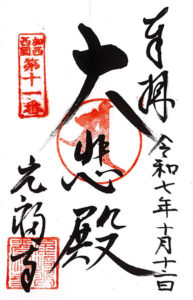 奉拝
令和七年十月十二日
大悲殿
加西
西国
第十一番
元福寺